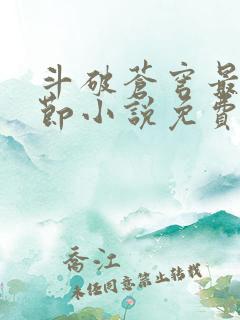 斗破蒼穹最
節小說免費
喬江
未經同意禁止轉載